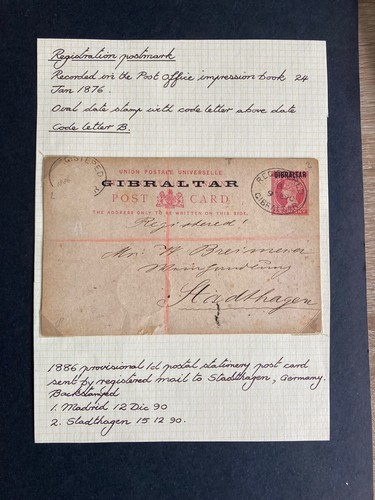 Registration postmark
Recorded in the Post Office impression book 24
Jan 1876.
Oval date stamp with code letter above date
Code letter B.
UNION POSTALE UNIVERSELLE
GIBRALTAR
POST CARD
THE ADDRESS ONLY TO BE WRITTEN ON THIS SIDE.
GIBRALTAR
REGISTERED
GIBRALTAR
Registered
Stadthagen
1886 provisional 1d postal stationery post card
sent by registered mail to Stadthagen, Germany.
Backstamped
1. Madrid 12 Dic 90
2. Stadthagen 15 12 90.